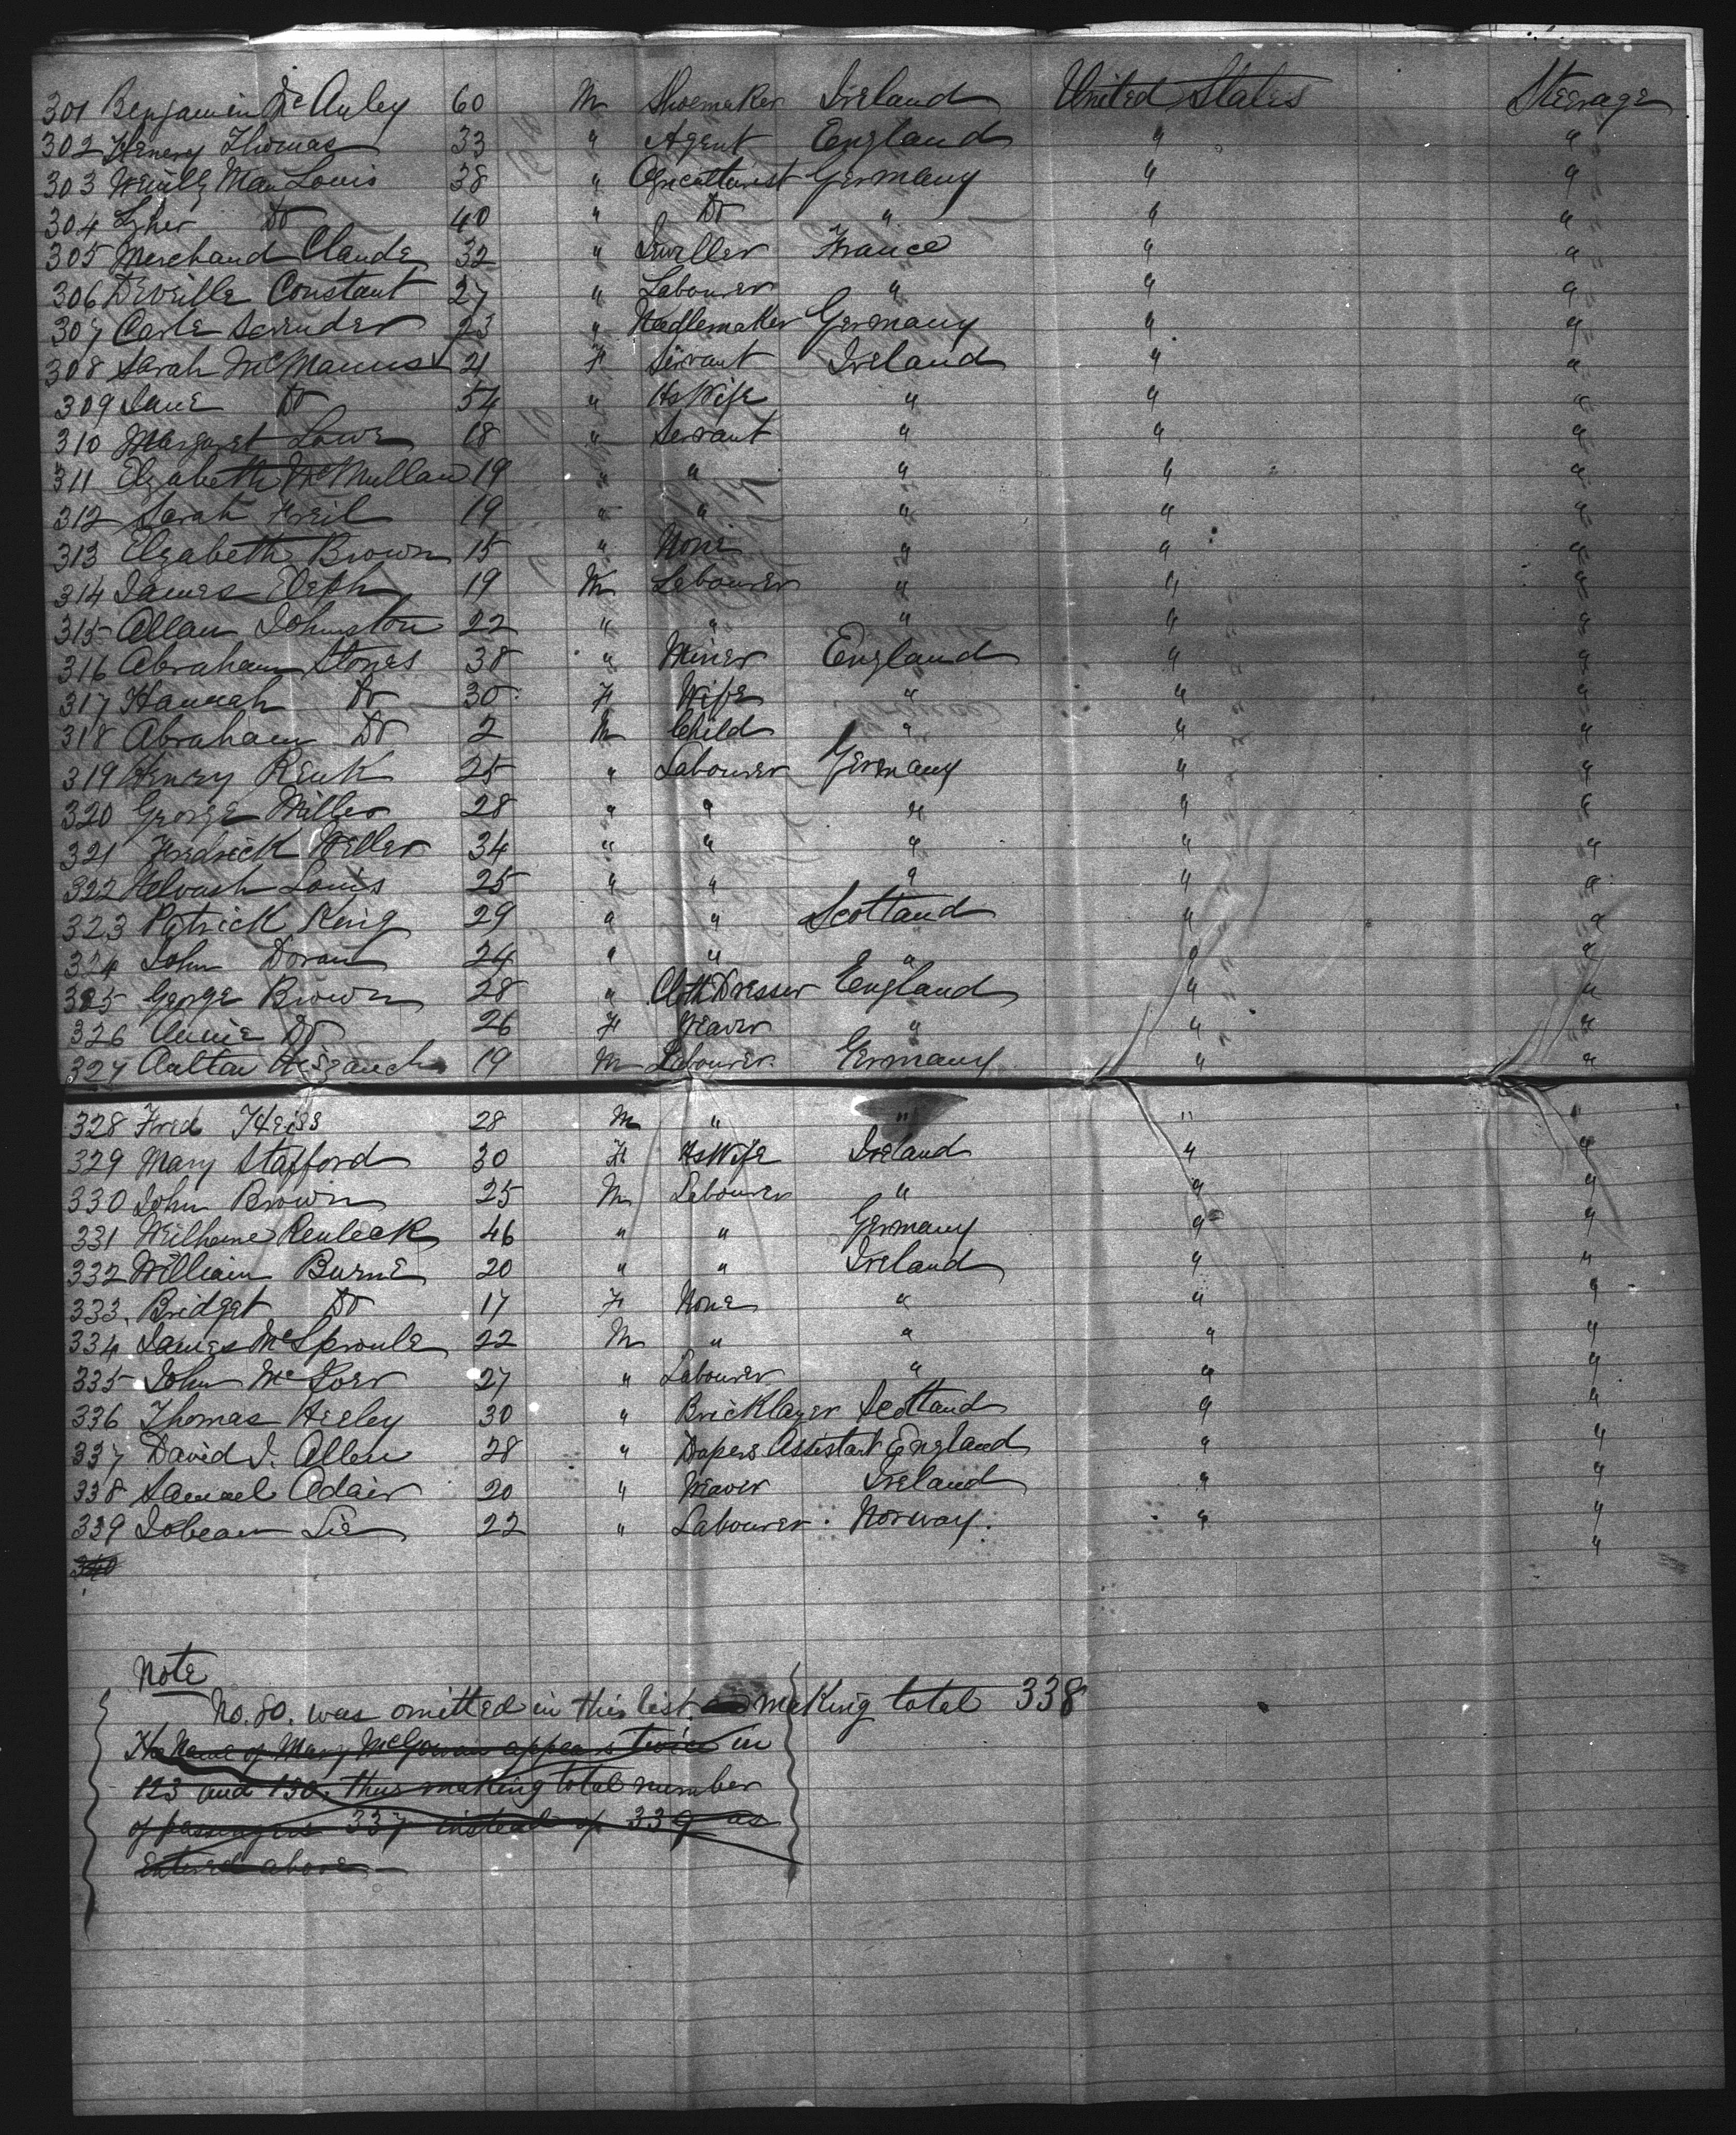 301 Benjamin McAuley 60 M Shoemaker Ireland United States Steerage
302 Henery Thomas 33 " Agent England " "
303 Louis 38 " Agriculturist Germany " "
304 Do 40 " Do " " "
305 Merchand Claude 32 " Jweller France " "
306 Deveille Constant 27 " Labourer " " "
307 Carle 23 " Needlemaker Germany " "
308 Sarah McManus 21 F Servant Ireland " "
309 Jane Do 54 " HsWife " " "
310 Margaret Lowe 18 " Servant " " "
311 Elzabeth McMullan 19 " " " " "
312 Sarah Freil 19 " " " " "
313 Elzabeth Brown 15 " None " " "
314 James 19 M Labourer " " "
315 Allan Johnston 22 " " " " "
316 Abraham Stones 38 " Miner England " "
317 Hannah Do 30 F Wife " " "
318 Abraham Do 2 M Child " " "
319 Henry Renk 25 " Labourer Germany " "
320 George Miller 28 " " " " "
321 Fredrick Weller 34 " " " " "
322 Louis 25 " " " " "
323 Patrick King 29 " " Scotland " "
324 John Doran 24 " " " " "
325 George Brown 28 " Cloth Dresser England " "
326 Annie Do 26 F Weaver " " "
327 19 M Labourer Germany " "
328 Fred Heiss 28 M " " " "
329 Mary Stafford 30 F HsWife Ireland " "
330 John Brown 25 M Labourer " " "
331 46 " " Germany " "
332 William Burne 20 " " Ireland " "
333 Bridget Do 17 F None " " "
334 James McSproule 22 M " " " "
335 John 27 " Labourer " " "
336 Thomas Heeley 30 " Bricklayer Scotland " "
337 David J. Allen 28 " Drapers Assistant England " "
338 Samuel Adair 20 " Weaver Ireland " "
339 Lie 22 " Labourer Norway. " "
340 "
Note
No. 80. was omitted in this list making total 338
The Name of Mary McGowan appears twice in
123 and 130. thus making total number
of passengers 337 instead of 339 as
entered above